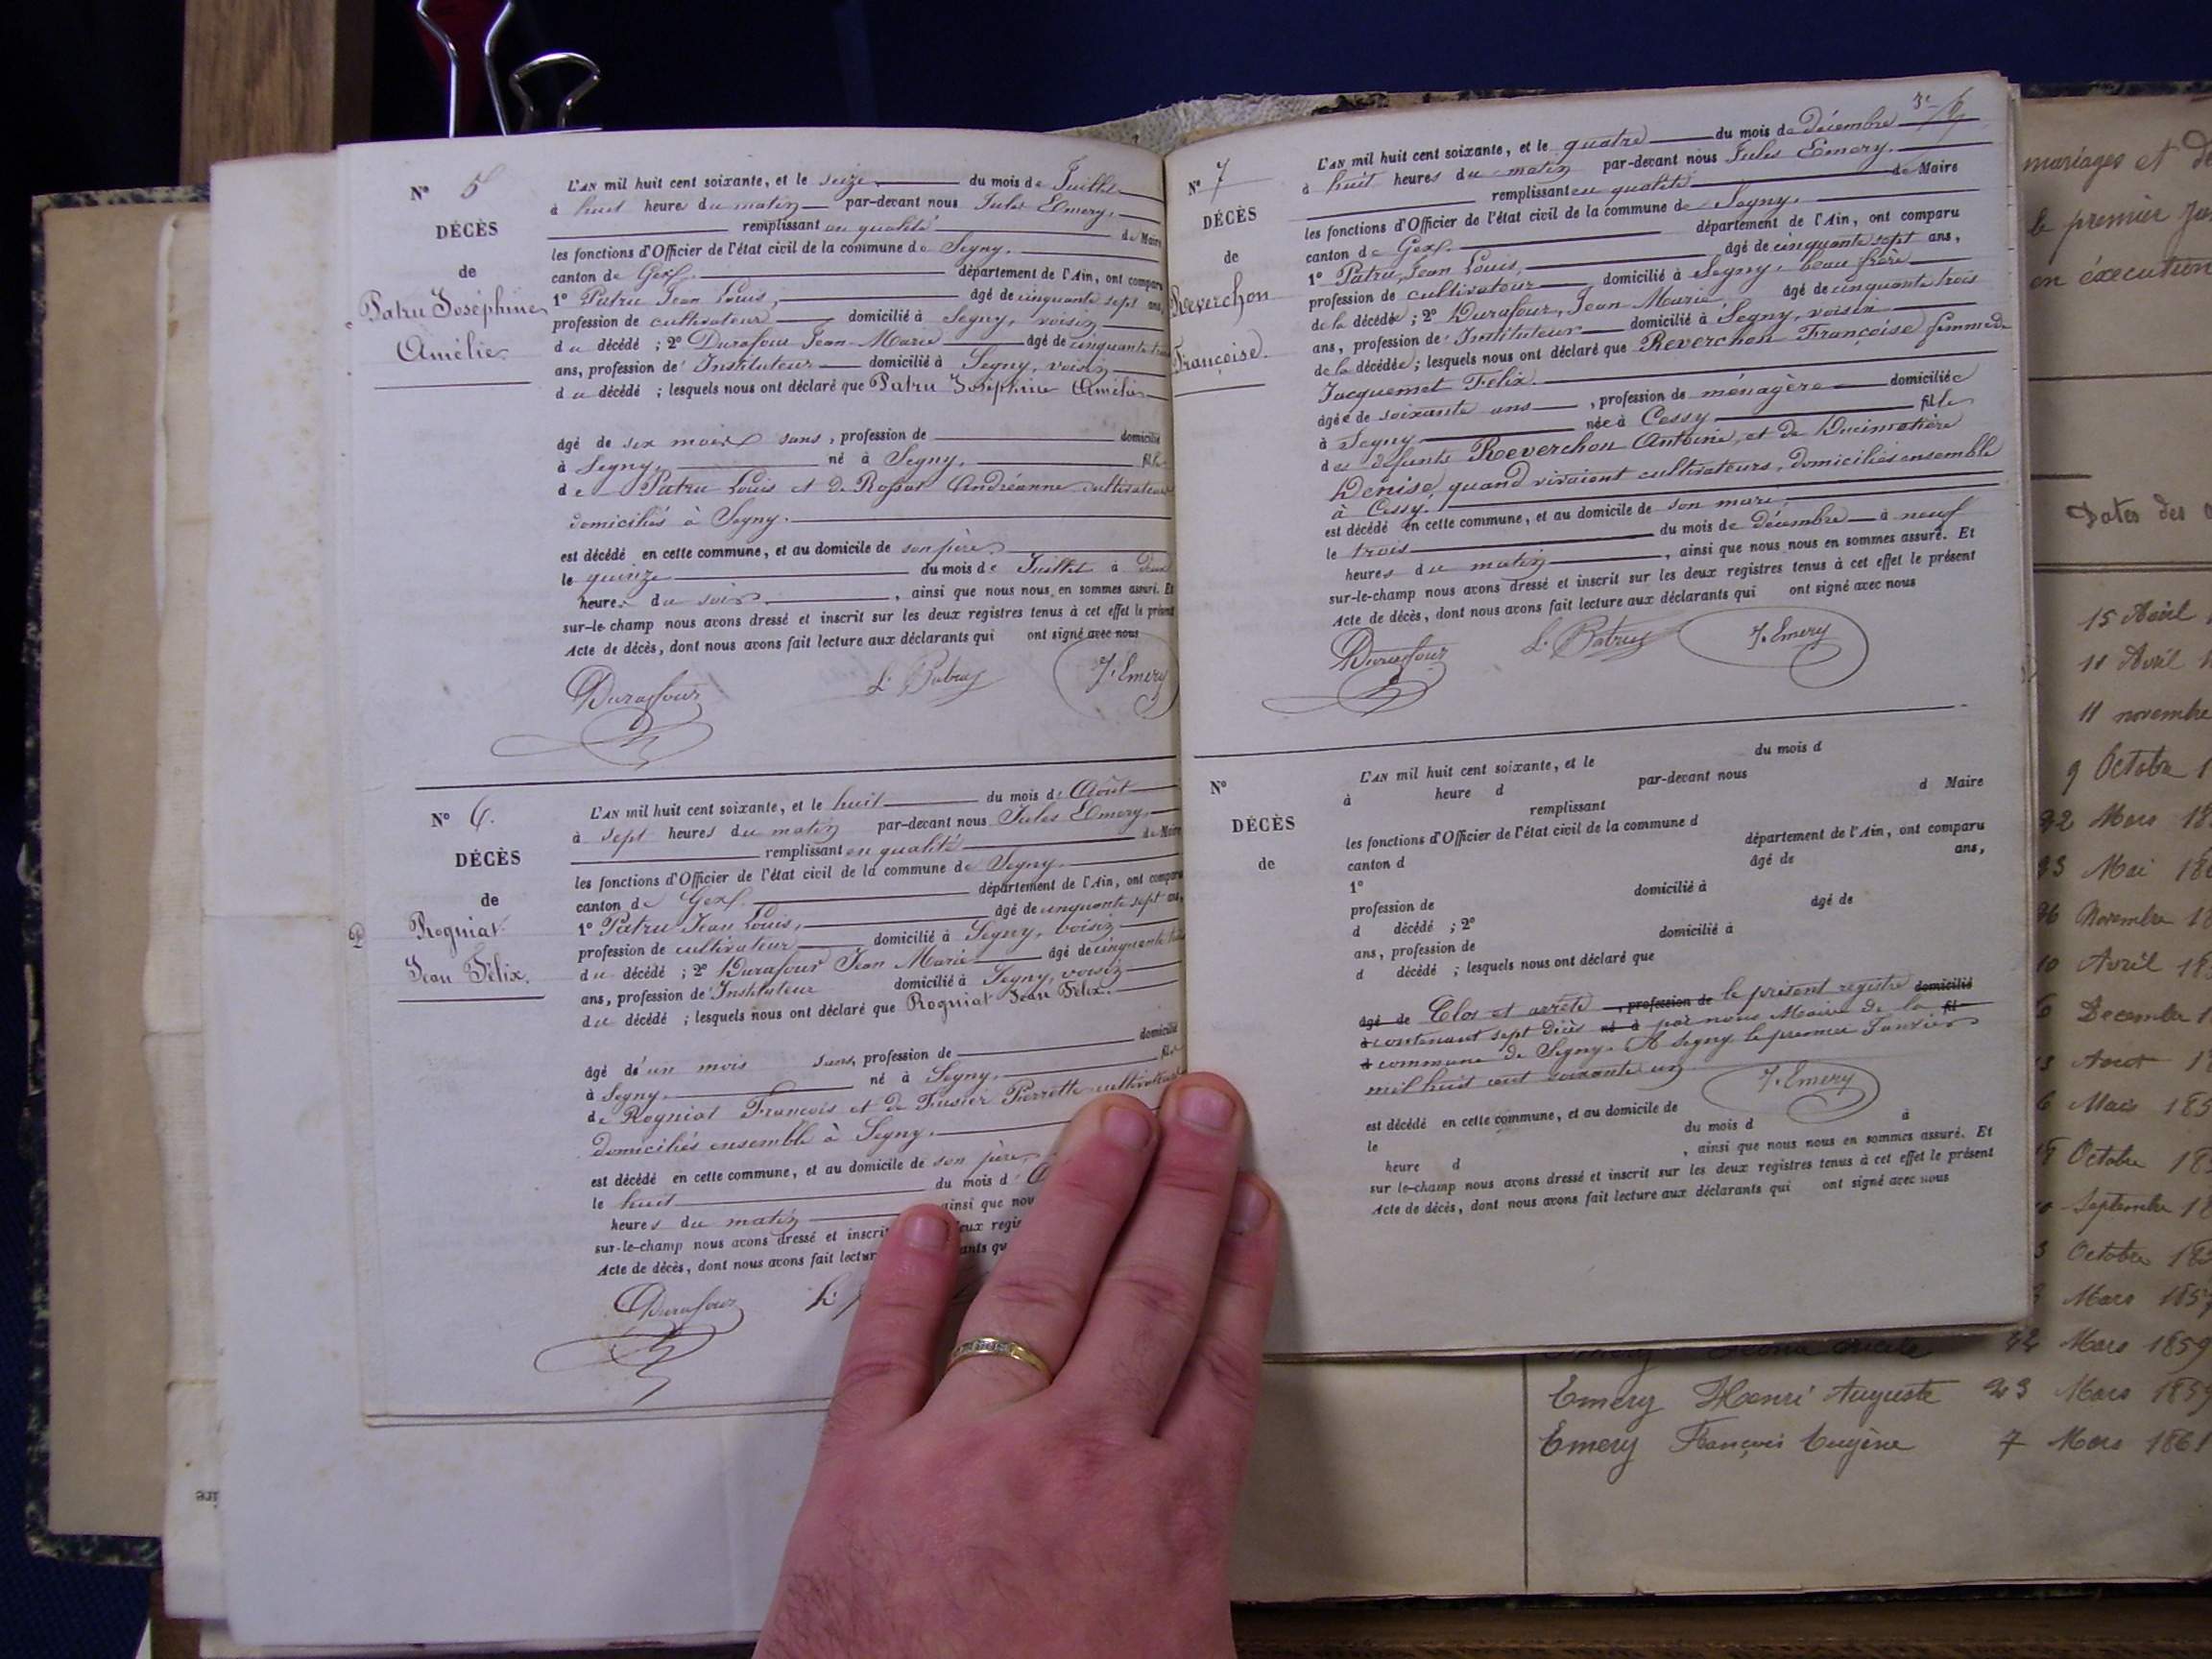 N° 5
DÉCÈS
de
Patru Joséphine
Amélie.
L'AN mil huit cent soixante, et le seize du mois de Juillet
à huit heures du matin par-devant nous Jules Emery,
remplissant en qualité de Maire
les fonctions d'Officier de l'état civil de la commune de Segny.
canton de Gex. département de l'Ain, ont comparu
1° Patru Jean Louis, âgé de cinquante sept ans,
profession de cultivateur domicilié à Segny, voisin
du décédé ; 2° Durafour Jean Marie âgé de cinquante
ans, profession de Instituteur domicilié à Segny, voisin
du décédé ; lesquels nous ont déclaré que Patru Joséphine Amélie
âgé de six mois sans, profession de domicilié
à Segny, né à Segny, fille
de Patru Louis et de Andréanne cultivateurs
domiciliés à Segny.
est décédé en cette commune, et au domicile de son père.
le quinze du mois de Juillet à deux
heures du soir, ainsi que nous nous en sommes assuré. Et
sur-le-champ nous avons dressé et inscrit sur les deux registres tenus à cet effet le présent
Acte de décès, dont nous avons fait lecture aux déclarants qui ont signé avec nous
Durafour L. Patru J. Emery
N° 6.
DÉCÈS
de
Rogniat
Jean Félix.
L'AN mil huit cent soixante, et le huit du mois d'Août
à sept heures du matin par-devant nous Jules Emery,
remplissant en qualité de Maire
les fonctions d'Officier de l'état civil de la commune de Segny.
canton de Gex. département de l'Ain, ont comparu
1° Patru Jean Louis, âgé de cinquante sept ans,
profession de cultivateur domicilié à Segny, voisin
du décédé ; 2° Durafour Jean Marie âgé de cinquante
ans, profession de Instituteur domicilié à Segny, voisin
du décédé ; lesquels nous ont déclaré que Rogniat Jean Félix.
âgé de un mois sans, profession de domicilié
à Segny. né à Segny. fils
de Rogniat François et de Pierrette cultivateurs
domiciliés ensemble à Segny.
est décédé en cette commune, et au domicile de son père,
le huit du mois d
heures du matin ainsi que nou
sur-le-champ nous avons dressé et inscrit eux regis
Acte de décès, dont nous avons fait lectur ants qu
Durafour L.
3e
N° 7
DÉCÈS
de
Reverchon
Françoise.
L'AN mil huit cent soixante, et le quatre du mois de Décembre
à huit heures du matin par-devant nous Jules Emery.
remplissant en qualité de Maire
les fonctions d'Officier de l'état civil de la commune de Segny.
canton de Gex. département de l'Ain, ont comparu
1° Patru, Jean Louis, âgé de cinquante sept ans,
profession de cultivateur domicilié à Segny, beau frère
de la décédée ; 2° Durafour, Jean Marie âgé de cinquante trois
ans, profession de Instituteur domicilié à Segny, voisin
de la décédée ; lesquels nous ont déclaré que Reverchon Françoise femme de
Jacquemet Félix.
âgée de soixante ans, profession de ménagère domiciliée
à Segny née à Cessy fille
des défunts Reverchon Antoine, et de Ducimetière
Denise, quand vivaient cultivateurs, domiciliés ensemble
à Cessy.
est décédé en cette commune, et au domicile de son mari,
le trois du mois de décembre à neuf
heures du matin, ainsi que nous nous en sommes assuré. Et
sur-le-champ nous avons dressé et inscrit sur les deux registres tenus à cet effet le présent
Acte de décès, dont nous avons fait lecture aux déclarants qui ont signé avec nous
Durafour L. Patru J. Emery
N°
DÉCÈS
de
L'AN mil huit cent soixante, et le du mois d
à heure d par-devant nous
remplissant d Maire
les fonctions d'Officier de l'état civil de la commune d
canton d département de l'Ain, ont comparu
1° âgé de ans,
profession de domicilié à
d décédé ; 2° âgé de
ans, profession de domicilié à
d décédé ; lesquels nous ont déclaré que
âgé de Clos et arrêté , profession de le présent registre domicilié
à contenant sept décès né à par nous Maire de la fil
d commune de Segny. A Segny le premier Janvier
mil huit cent soixante un
J. Emery
est décédé en cette commune, et au domicile de
le du mois d à
heure d , ainsi que nous nous en sommes assuré. Et
sur le-champ nous avons dressé et inscrit sur les deux registres tenus à cet effet le présent
Acte de décès, dont nous avons fait lecture aux déclarants qui ont signé avec nous
mariages et d
le premier Jan
en éxécution
Dates des
15 Avril
11 Avril
11 novembre
9 Octobre 1
22 Mars 18
Mai 18
Novembre 18
10 Avril 18
6 Decembre 1
Aout 1
6 Mars 185
Octobre 18
Septembre 18
3 Octobre 18
Mars 185
22 Mars 1859
Emery Henri Auguste 23 Mars 1859
Emery François Eugène 7 Mars 1861